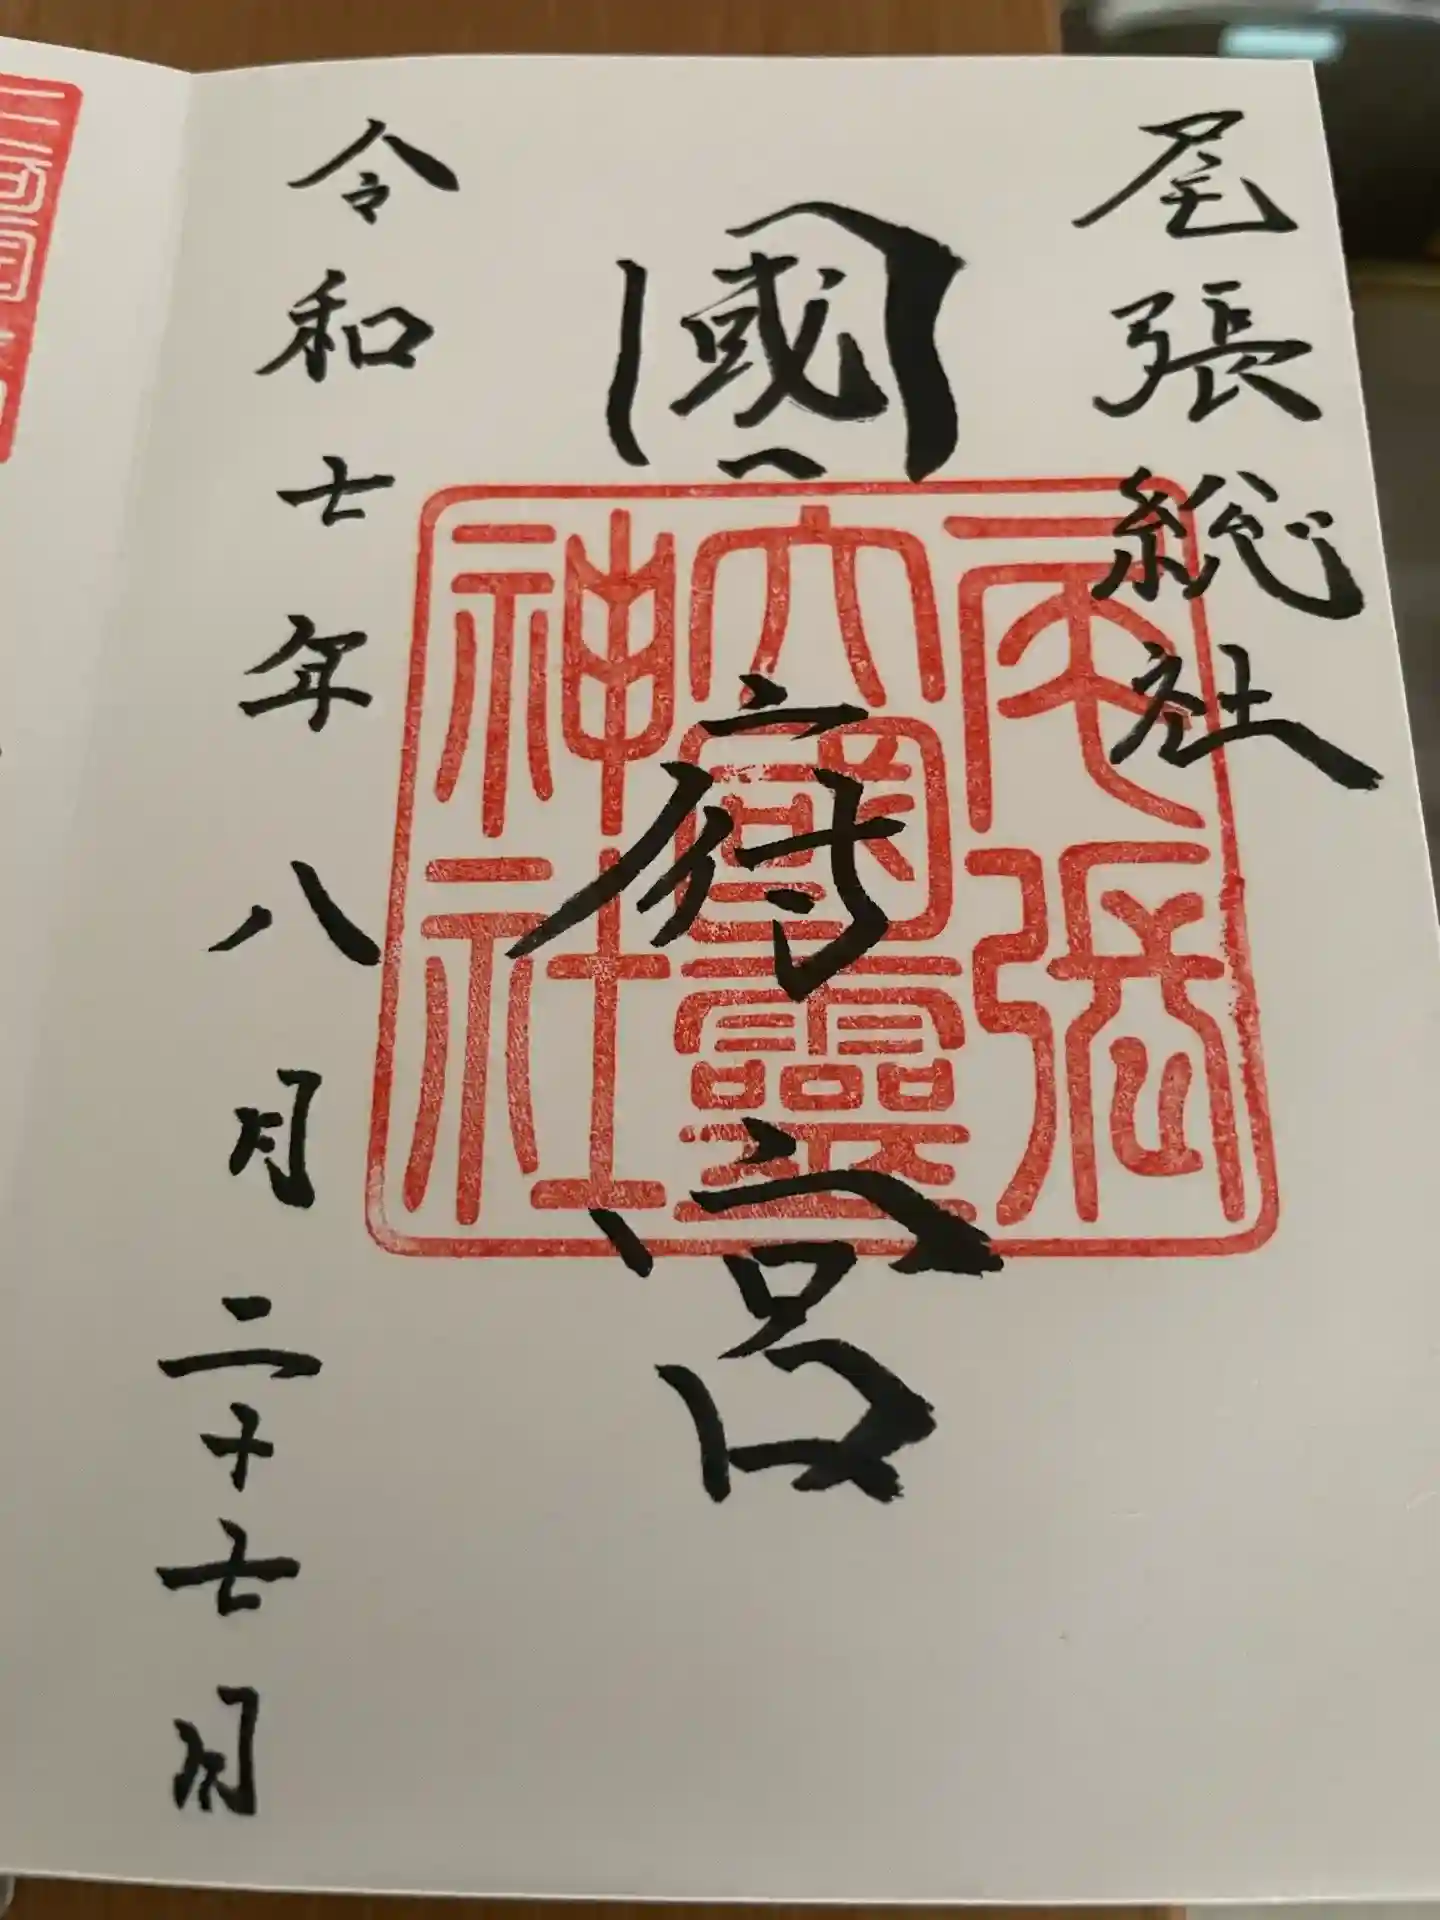 尾張総社
國府宮
尾張
大國霊
神社
令和七年八月二十七日